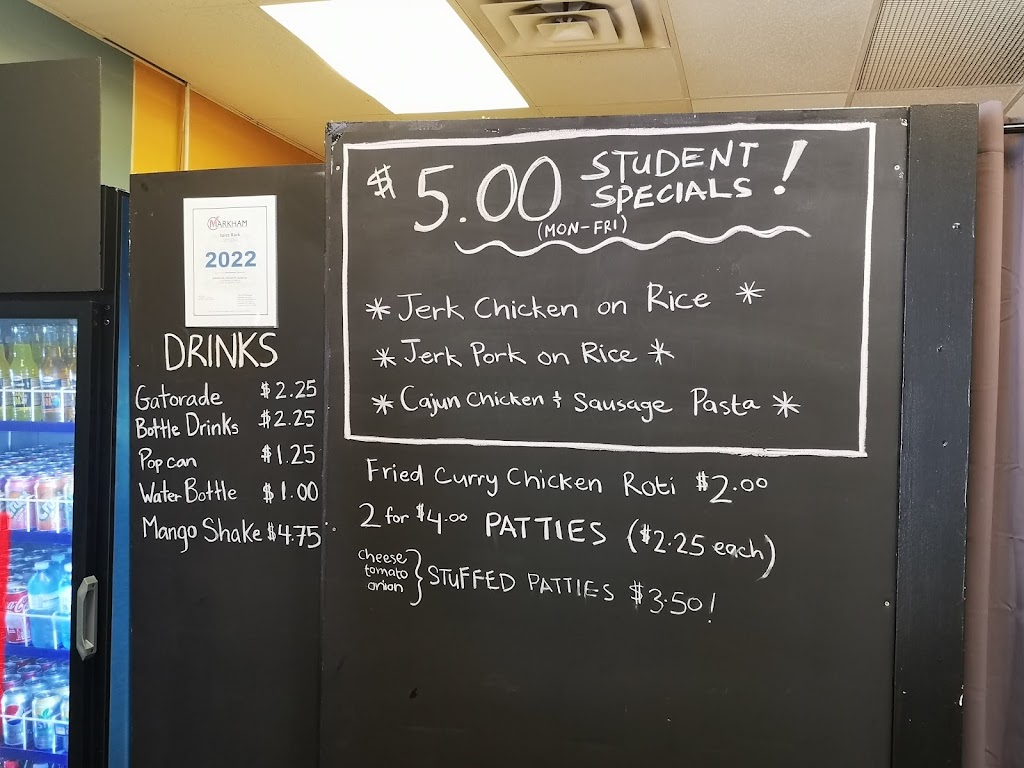 MARKHAM
2022
DRINKS
Gatorade $2.25
Bottle Drinks $2.25
Pop can $1.25
Water Bottle $1.00
Mango Shake $4.75
$5.00 STUDENT
SPECIALS!
(MON-FRI)
* Jerk Chicken on Rice *
* Jerk Pork on Rice *
* Cajun Chicken & Sausage Pasta *
Fried Curry Chicken Roti $2.00
2 for $4.00 PATTIES ($2.25 each)
cheese
tomato
onion
} STUFFED PATTIES $3.50!